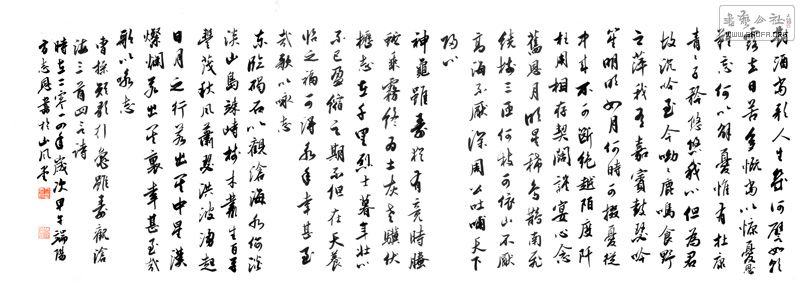 對酒當歌人生幾何譬如朝
露去日苦多慨當以慷憂思
難忘何以解憂惟有杜康
青青子衿悠悠我心但為君
故沉吟至今呦呦鹿鳴食野
之萍我有嘉賓鼓瑟吹
笙明明如月何時可掇憂從
中來不可斷絕越陌度阡
枉用相存契闊談宴心念
舊恩月明星稀烏鵲南飛
繞樹三匝何枝可依山不厭
高海不厭深周公吐哺天下
歸心
神龜雖壽猶有竟時騰
蛇乘霧終為土灰老驥伏
櫪志在千里烈士暮年壯心
不已盈縮之期不但在天養
怡之福可得永年幸甚至
哉歌以詠志
東臨碣石以觀滄海水何澹
澹山島竦峙樹木叢生百草
豐茂秋風蕭瑟洪波涌起
日月之行若出其中星漢
燦爛若出其裏幸甚至哉
歌以詠志
曹操短歌行龜雖壽觀滄
海三首四言詩
時在二零一四年歲次甲午端陽
方志恩書於山風堂